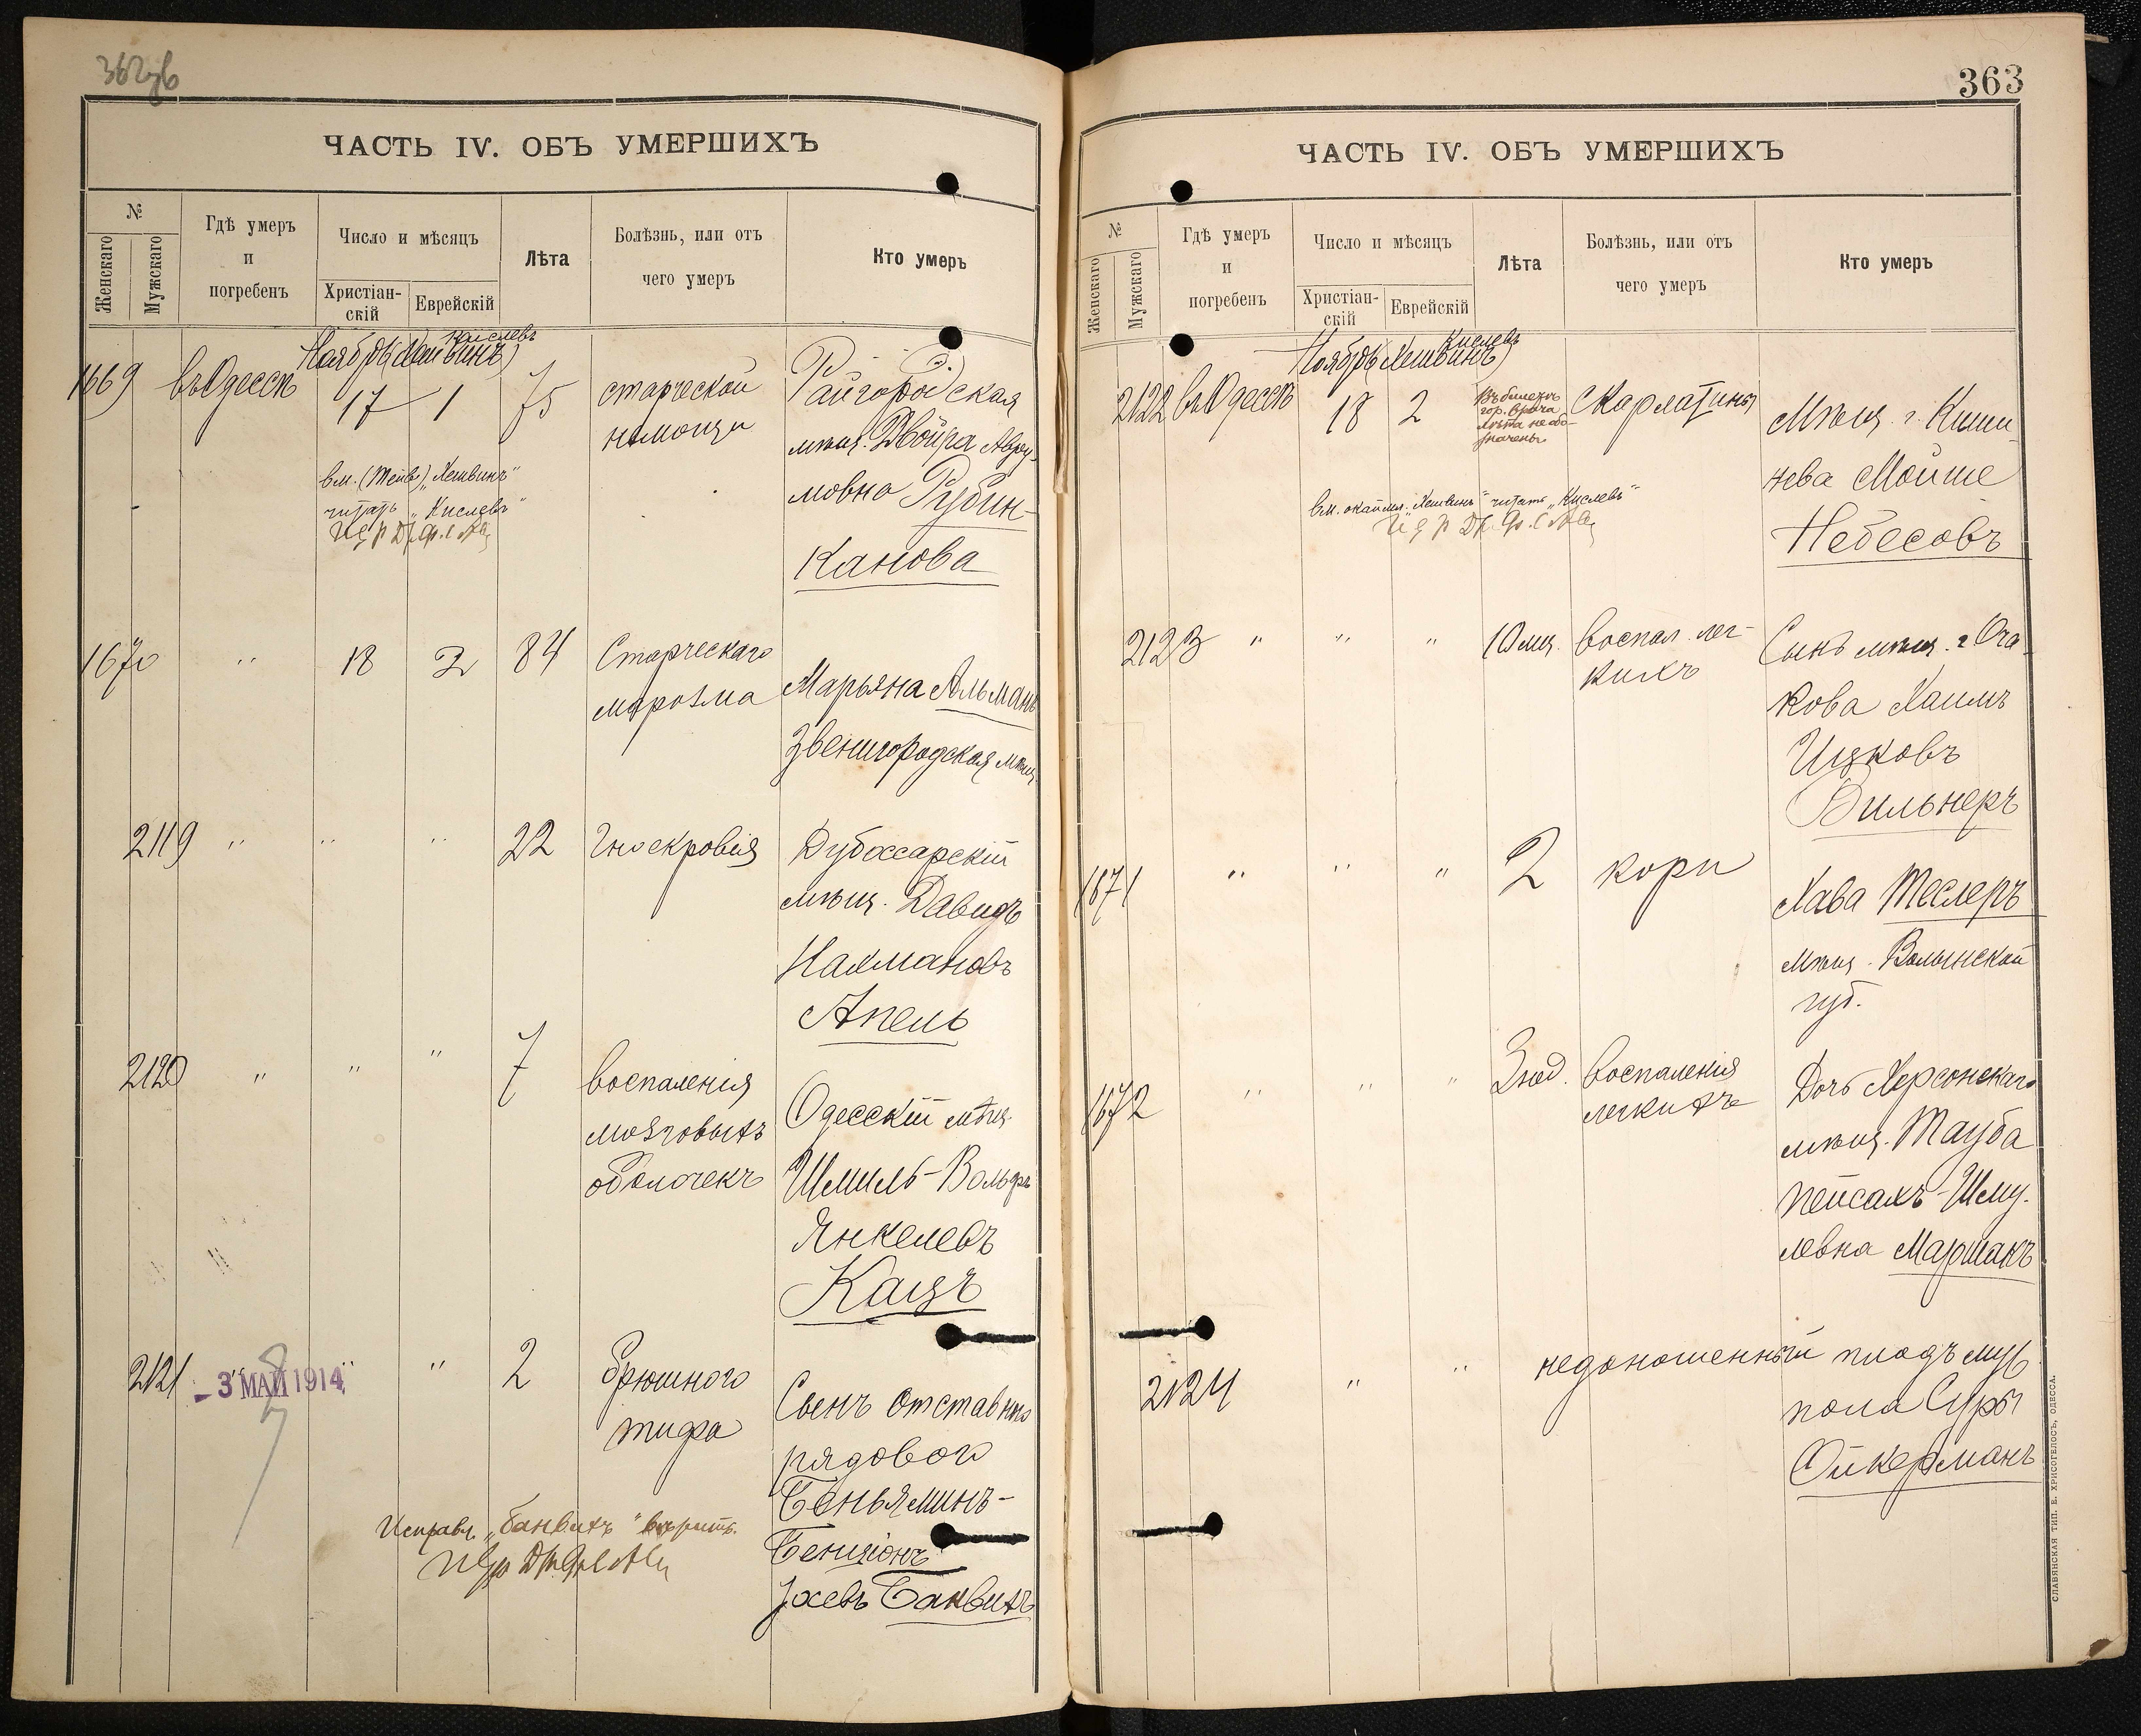 362об
ЧАСТЬ IV. ОБЪ УМЕРШИХЪ
№
Женскаго
Мужскаго
Гдѣ умеръ
и
погребенъ
Число и мѣсяцъ
Христіан-
скій
Еврейскій
Лѣта
Болѣзнь, или отъ
чего умеръ
Кто умеръ
Кислевъ
Ноябрь (Хешвинъ)
1669 въ Одессѣ 17 1 75
старческой
немощи
Райгородская
мѣщ. Двойра Авру-
мовна Рубин-
канова
вм. "Хешвинъ"
читать "Кислевъ"
1670 " 18 2 84
Старческаго
маразма
Марьяна Альманъ
Звенигородская мѣщ.
2119 " " " 22 Гноекровія
Дубоссарскій
мѣщ. Давидъ
Нахмановъ
Апель
2120 " " " 7
воспаленія
мозговыхъ
оболочекъ
Одесскій мѣщ.
Шмиль-Вольфъ
Янкелевъ
Кацъ
2121 " " " 2
- 3 МАЙ 1914
брюшного
тифа
Сынъ отставного
рядового
Беньяминъ-
Бенціонъ
Іосевъ Банвихъ
Исправл. "Банвихъ" вѣрить.
363
ЧАСТЬ IV. ОБЪ УМЕРШИХЪ
№
Женскаго
Мужскаго
Гдѣ умеръ
и
погребенъ
Число и мѣсяцъ
Христіан-
скій
Еврейскій
Лѣта
Болѣзнь, или отъ
чего умеръ
Кто умеръ
Кислевъ
Ноябрь (Хешвинъ)
2122 въ Одессѣ 18 2
Въ билетѣ
гор. врача
лѣта не обо-
значены
Скарлатины
Мѣщ. г. Киши-
нева Мойше
Небесовъ
вм. "Хешвинъ" читать "Кислевъ"
2123 " " " 10 мѣс.
воспал. лег-
кихъ
Сынъ мѣщ. г. Оча-
кова Хаимъ
Ицковъ
Вильнеръ
1671 " " " 2 кори
Хава Теслеръ
мѣщ. Волынской
губ.
1672 " " " 3 нед.
воспаленія
легкихъ
Дочь Херсонскаго
мѣщ. Тауба
Пейсахъ-Шму-
левна Маршакъ
2124 " " недоношенный плодъ муж.
пола Суры
Ойкерманъ
СЛАВЯНСКАЯ ТИП. Е. ХРИСОГЕЛОСЪ, ОДЕССА.